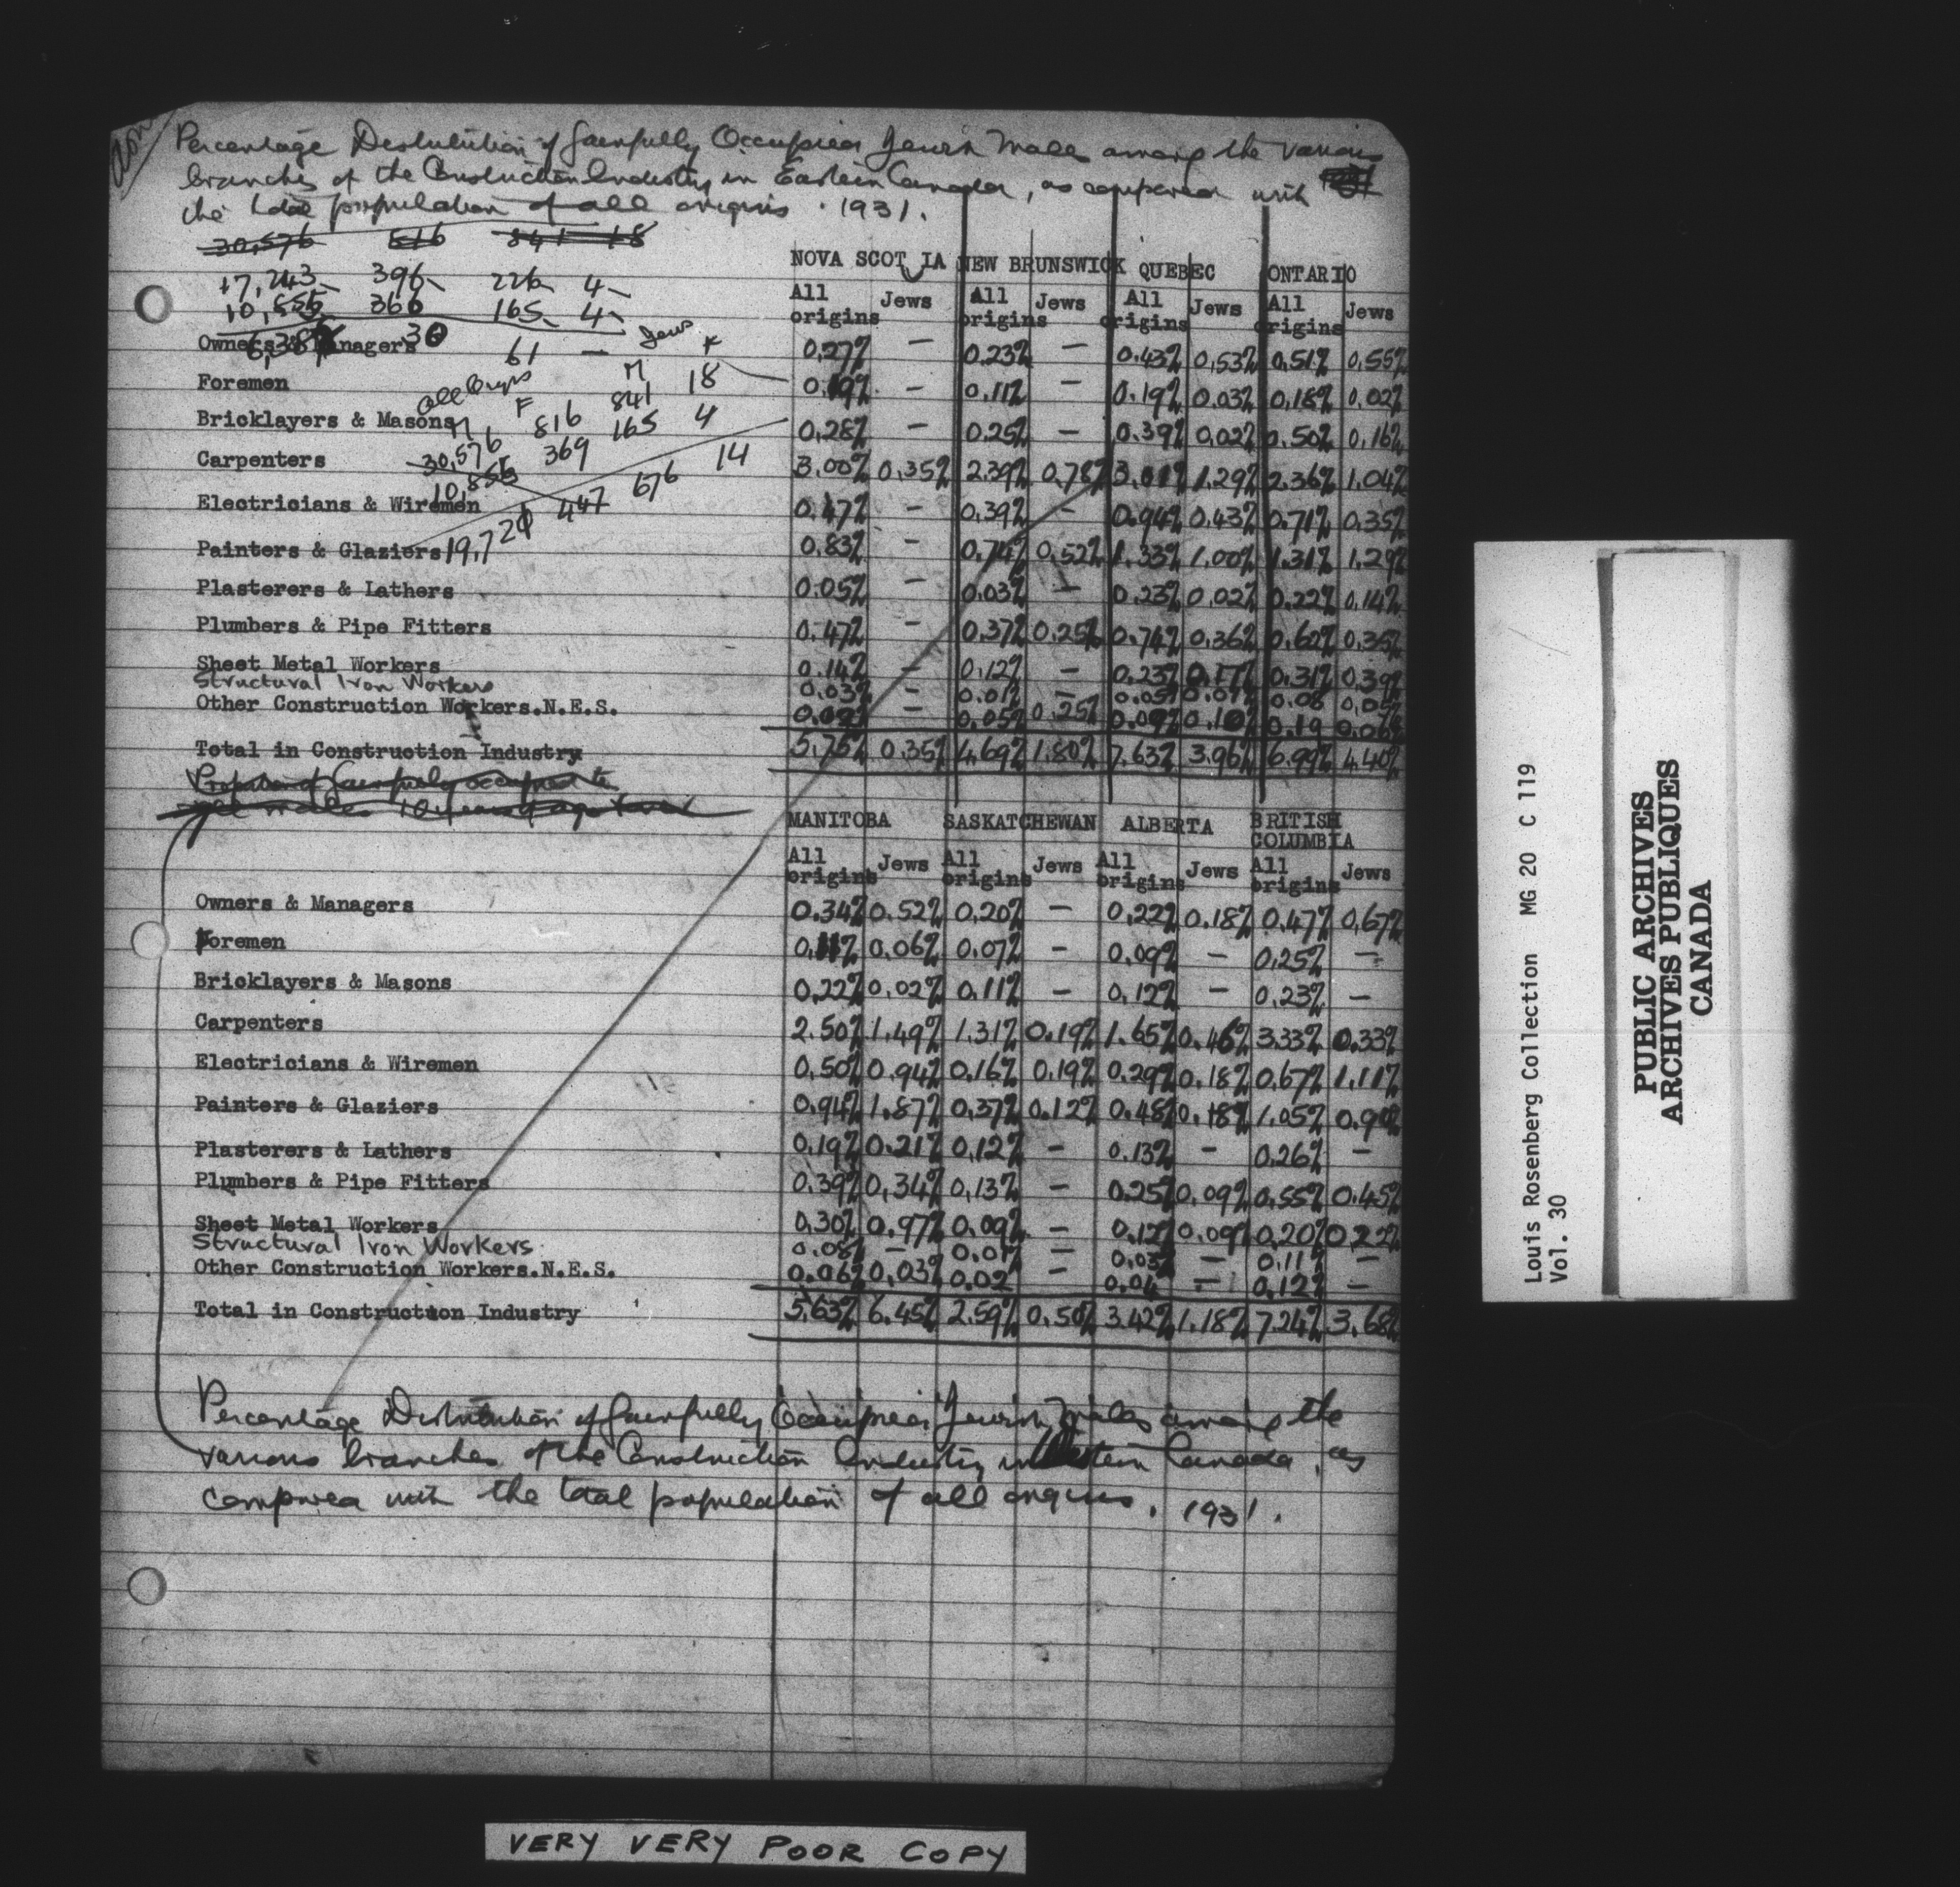 Percentage Distribution of Gainfully Occupied Jewish Males among the various
branches of the Construction Industry in Eastern Canada, as compared with
the total population of all origins. 1931.
30,576 816 841 18
17,243 396 226 4
10,855 366 165 4
30 61 —
Jews
All Origins M F
M F 841 18
30,576 816 165 4
10,855 369 676 14
19,721 447
NOVA SCOTIA NEW BRUNSWICK QUEBEC ONTARIO
All origins Jews All origins Jews All origins Jews All origins Jews
Owners & Managers 0.27% — 0.23% — 0.43% 0.53% 0.51% 0.55%
Foremen 0.19% — 0.11% — 0.19% 0.03% 0.18% 0.02%
Bricklayers & Masons 0.28% — 0.25% — 0.39% 0.02% 0.50% 0.16%
Carpenters 3.00% 0.35% 2.39% 0.78% 3.01% 1.29% 2.36% 1.04%
Electricians & Wiremen 0.47% — 0.39% — 0.94% 0.43% 0.71% 0.35%
Painters & Glaziers 0.83% — 0.74% 0.52% 1.33% 1.00% 1.31% 1.29%
Plasterers & Lathers 0.05% — 0.03% — 0.23% 0.02% 0.22% 0.14%
Plumbers & Pipe Fitters 0.47% — 0.37% 0.25% 0.74% 0.36% 0.62% 0.35%
Sheet Metal Workers 0.14% — 0.12% — 0.23% 0.17% 0.31% 0.39%
Structural Iron Workers 0.03% — 0.01% — 0.05% 0.01% 0.08 0.05%
Other Construction Workers.N.E.S. — 0.05% 0.25% 0.10% 0.19 0.06%
Total in Construction Industry 5.75% 0.35% 4.69% 1.80% 7.63% 3.96% 6.99% 4.40%
Proportion of Gainfully occupied to
all males 10 years of age & over
MANITOBA SASKATCHEWAN ALBERTA BRITISH COLUMBIA
All origins Jews All origins Jews All origins Jews All origins Jews
Owners & Managers 0.34% 0.52% 0.20% — 0.22% 0.18% 0.47% 0.67%
Foremen 0.11% 0.06% 0.07% — 0.09% — 0.25% —
Bricklayers & Masons 0.22% 0.02% 0.11% — 0.12% — 0.23% —
Carpenters 2.50% 1.49% 1.31% 0.19% 1.65% 0.46% 3.33% 0.33%
Electricians & Wiremen 0.50% 0.94% 0.16% 0.19% 0.29% 0.18% 0.67% 1.11%
Painters & Glaziers 0.94% 1.87% 0.37% 0.12% 0.48% 0.18% 1.05% 0.90%
Plasterers & Lathers 0.19% 0.21% 0.12% — 0.13% — 0.26% —
Plumbers & Pipe Fitters 0.39% 0.34% 0.13% — 0.25% 0.09% 0.55% 0.45%
Sheet Metal Workers 0.30% 0.97% 0.09% — 0.12% 0.09% 0.20% 0.22%
Structural Iron Workers 0.08% — 0.01% — 0.03% — 0.11% —
Other Construction Workers.N.E.S. 0.06% 0.03% 0.02 — 0.04 — 0.12% —
Total in Construction Industry 5.63% 6.45% 2.59% 0.50% 3.42% 1.18% 7.24% 3.68%
Percentage Distribution of Gainfully Occupied Jewish Males among the
various branches of the Construction Industry in Western Canada, as
compared with the total population of all origins. 1931.
Louis Rosenberg Collection MG 20 C 119
Vol. 30
PUBLIC ARCHIVES
ARCHIVES PUBLIQUES
CANADA
VERY VERY POOR COPY